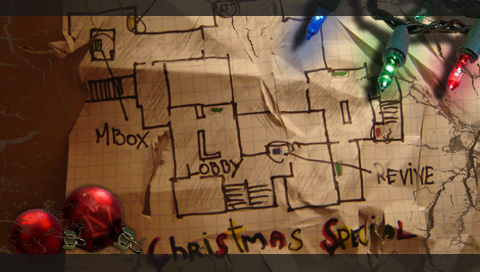 MBOX
LOBBY
REVIVE
Christmas Special